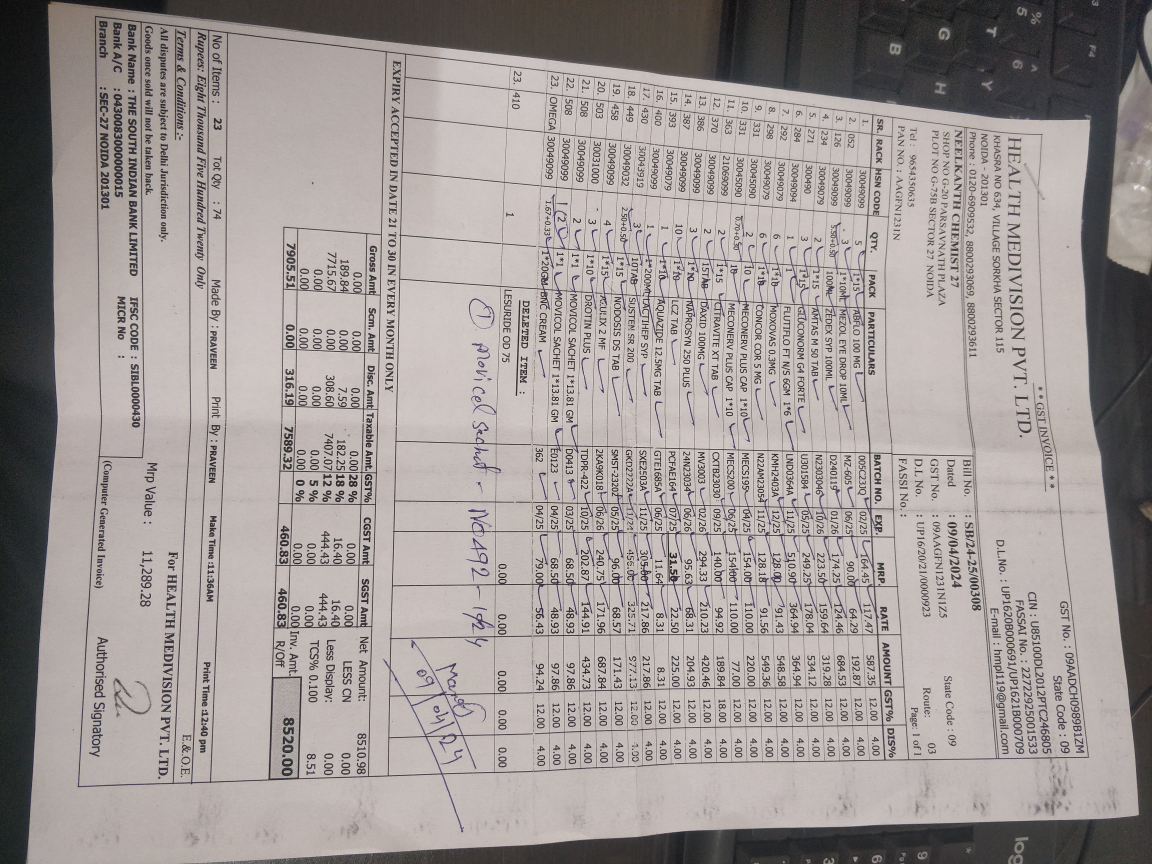 ** GST INVOICE **
GST No. : 09AADCH0989B1ZM
State Code : 09
HEALTH MEDIVISION PVT. LTD.
KHASRA NO 634, VILLAGE SORKHA SECTOR 115
NOIDA - 201301
Phone : 0120-6909532, 8800293069, 8800293611
CIN : U85100DL2012PTC246805
FASSAI No. : 22722925001533
D.L.No. : UP1620B000691/UP1621B000709
E-mail : hmpl119@gmail.com
NEELKANTH CHEMIST 27
SHOP NO G-20 PARSAVNATH PLAZA
PLOT NO G-75B SECTOR 27 NOIDA
Tel : 9654380635
PAN NO. : AAGFN1231N
Bill No. : SB/24-25/00308
Dated : 09/04/2024
GST No. : 09AAGFN1231N1Z5
D.l. No. : UP16/20/21/0000923
FASSI No. :
State Code : 09
Route: 03
Page: 1 of 1
SR. RACK HSN CODE QTY. PACK PARTICULARS BATCH NO. EXP. MRP. RATE AMOUNT GST% DIS%
1. 30049099 5 1*15 ABFLO 100 MG 005C23Q 02/25 164.45 117.47 587.35 12.00 4.00
2. 052 30049099 3 1*10ML MEZOL EYE DROP 10ML MZ-605 06/25 90.00 64.29 192.87 12.00 4.00
3. 126 30049099 5.50+0.50 100ML ZEDEX SYP 100ML D240119 01/26 174.25 124.46 684.53 12.00 4.00
4. 234 30049079 2 1*15 AMTAS M 50 TAB N2303046 10/26 223.50 159.64 319.28 12.00 4.00
5. 271 300490 3 1*15 GLUCONORM G4 FORTE U301584 05/25 249.25 178.04 534.12 12.00 4.00
6. 284 30049094 1 1 FLUTIFLO FT N/S 6GM 1*6 LND0364A 11/25 510.90 364.94 364.94 12.00 4.00
7. 292 30049079 6 1*10 MOXOVAS 0.3MG KMH2403A 12/25 128.00 91.43 548.58 12.00 4.00
8. 298 30049079 6 1*10 CONCOR COR 5 MG N22AM23054 11/25 128.18 91.56 549.36 12.00 4.00
9. 331 30045090 2 10 MECONERV PLUS CAP 1*10 MECS199 04/25 154.00 110.00 220.00 12.00 4.00
10. 331 30045090 0.70+0.30 10 MECONERV PLUS CAP 1*10 MECS200 06/25 154.00 110.00 77.00 12.00 4.00
11. 363 21069099 2 1*15 CITRAVITE XT TAB CXTB23030 09/25 140.00 94.92 189.84 18.00 4.00
12. 370 30049099 2 15TAB DAXID 100MG MV3003 02/26 294.33 210.23 420.46 12.00 4.00
13. 386 30049099 3 1*10 NAPROSYN 250 PLUS 24N23034 06/26 95.63 68.31 204.93 12.00 4.00
14. 387 30049099 10 1*10 LCZ TAB PCFAE164 07/25 31.50 22.50 225.00 12.00 4.00
15. 393 30049079 1 1*10 AQUAZIDE 12.5MG TAB GTE1685A 06/25 11.64 8.31 8.31 12.00 4.00
16. 400 30049099 1 1*200ML LACTIHEP SYP SKE2503A 11/25 305.00 217.86 217.86 12.00 4.00
17. 430 30043919 3 10TAB SUSTEN SR 200 977.13 12.00 4.00
18. 449 30049032 2.50+0.50
19. 458 30049099 4 1*15 NODOSIS DS TAB SMST-23202 05/25 96.00 68.57 171.43 12.00 4.00
20. 503 30031000 3 1*15 ACULIX 2 MF 2XA9K018 06/26 240.75 171.96 687.84 12.00 4.00
21. 508 30049099 2 1*10 DROTIN PLUS TDPR-422 10/25 202.87 144.91 434.73 12.00 4.00
22. 508 30049099 2 1*1 MOVICOL SACHET 1*13.81 GM D0413 03/25 68.50 48.93 97.86 12.00 4.00
23. OMEGA 30049099 1.67+0.33 1*1 MOVICOL SACHET 1*13.81 GM E0123 04/25 68.50 48.93 97.86 12.00 4.00
1*20GM BNC CREAM 362 04/25 79.00 56.43 94.24 12.00 4.00
DELETED ITEM :
23. 410 1 LESURIDE OD 75 0.00 0.00 0.00 0.00 0.00
① Movicol Sachet - D0492 -
09/04/24
EXPIRY ACCEPTED IN DATE 21 TO 30 IN EVERY MONTH ONLY
Gross Amt Scm. Amt Disc. Amt Taxable Amt. GST% CGST Amt SGST Amt
0.00 0.00 0.00 0.00 28 % 0.00 0.00
189.84 0.00 7.59 182.25 18 % 16.40 16.40
7715.67 0.00 308.60 7407.07 12 % 444.43 444.43
0.00 0.00 0.00 0.00 5 % 0.00 0.00
0.00 0.00 0.00 0.00 0 % 0.00 0.00
7905.51 0.00 316.19 7589.32 460.83 460.83
Net Amount: 8510.98
LESS CN 0.00
Less Display: 0.00
TCS% 0.100 8.51
Inv. Amt. R/Off 8520.00
No of Items : 23 Tot Qty : 74 Made By : PRAVEEN Print By : PRAVEEN Make Time :11:36AM Print Time :12:40 pm
Rupees: Eight Thousand Five Hundred Twenty Only
E.&.O.E.
Terms & Conditions :-
All disputes are subject to Delhi Jurisdiction only.
Goods once sold will not be taken back.
Bank Name : THE SOUTH INDIAN BANK LIMITED IFSC CODE : SIBL0000430
Bank A/C : 0430083000000015 MICR No :
Branch : SEC-27 NOIDA 201301
Mrp Value : 11,289.28
For HEALTH MEDIVISION PVT. LTD.
(Computer Generated Invoice)
Authorised Signatory